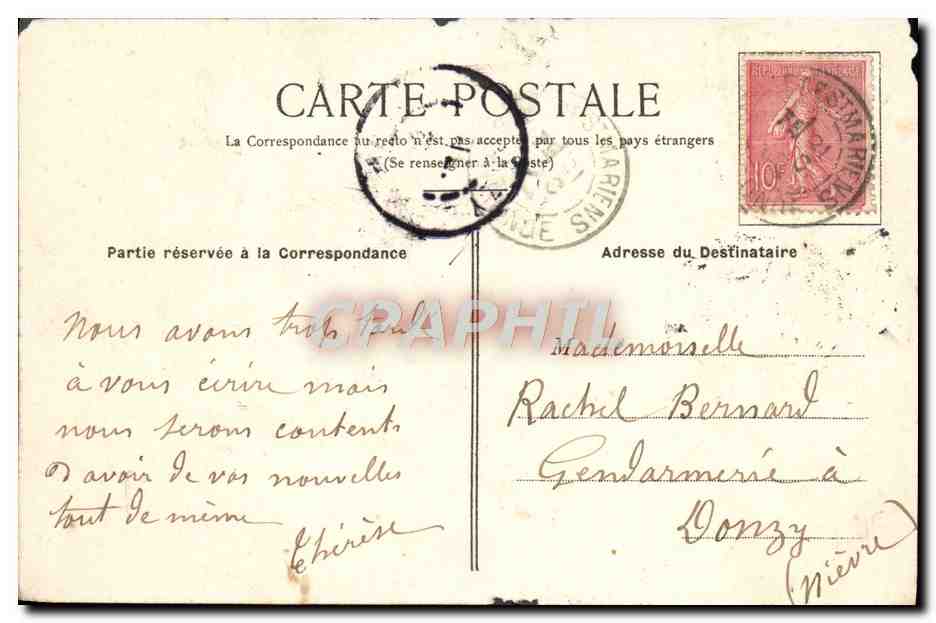 CARTE POSTALE
La Correspondance au recto n'est pas acceptée par tous les pays étrangers
(Se renseigner à la Poste)
REPUBLIQUE FRANÇAISE
10c
ST MARIENS
ST MARIENS
ZY
Partie réservée à la Correspondance
Adresse du Destinataire
CPAPHIL
Nous avons trop tardé
à vous écrire mais
nous serons contents
d'avoir de vos nouvelles
tout de même
Thérèse
Mademoiselle
Rachel Bernard
Gendarmerie à
Donzy
(Nièvre)